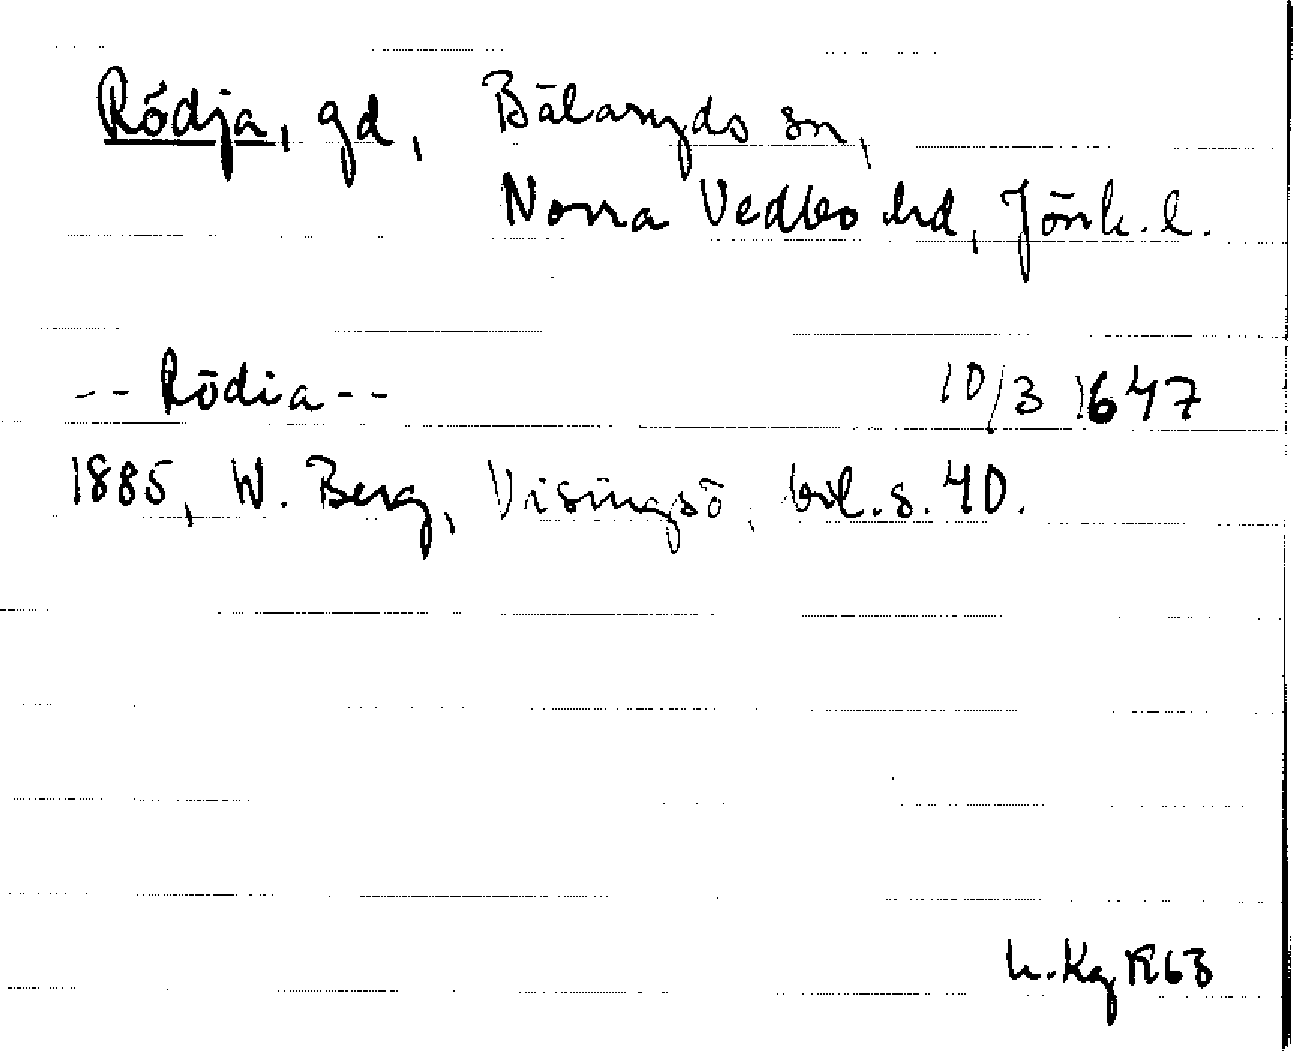 Rödja, gd, Bälaryds sn,
Norra Vedbo hd, Jönk. l.
-- Rödia -- 10/3 1647
1885, W. Berg, Visingsö, bil. s. 40.